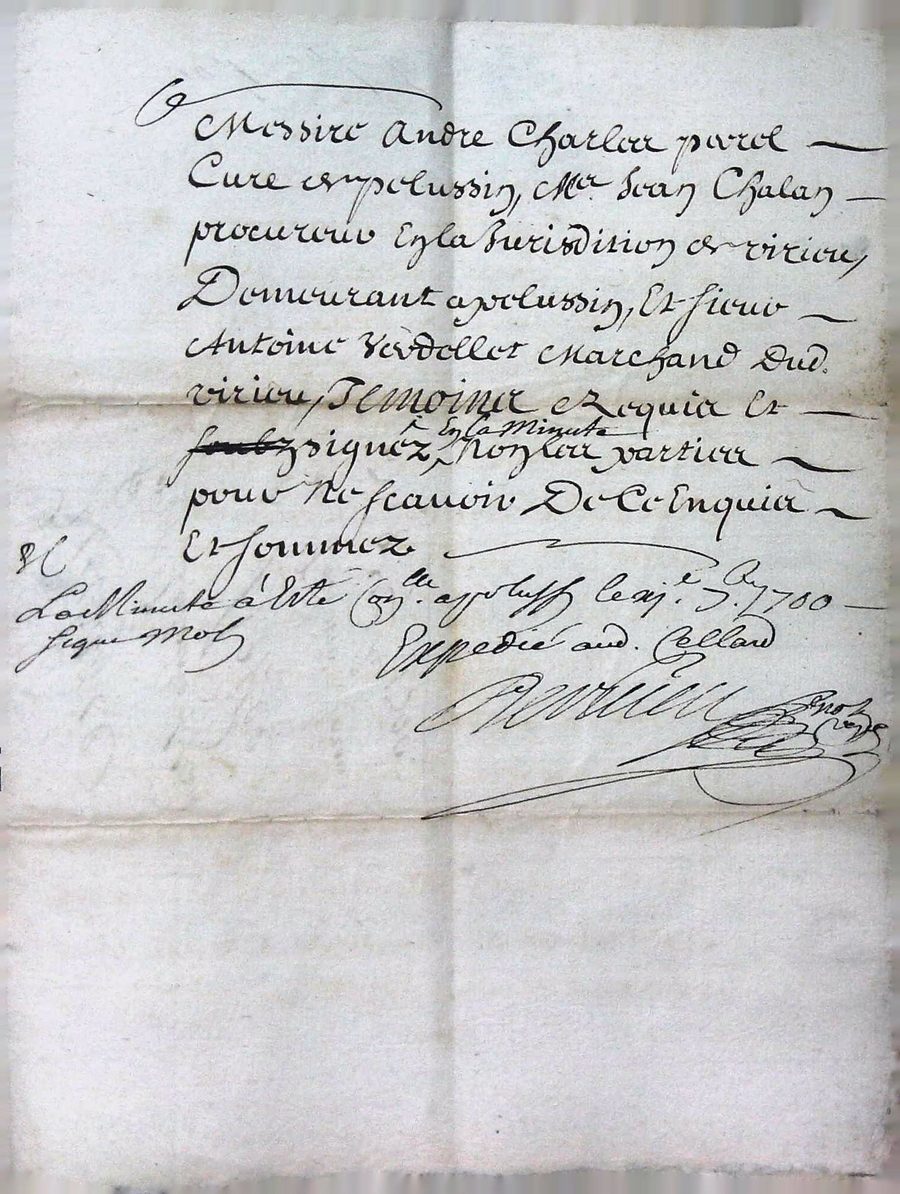 Messire Andre Charles perrel
Cure de pelussin, Mre. Jean Chalan
procureur En la Jurisdition de virieu,
Demeurant a pelussin, Et sieur
Antoine Verdellet Marchand dud.
virieu, Temoins Requis et
soubzsignez, En la Minute
Non les parties
pour Ne scavoir De Ce Enquis
Et sommez
La Minute à Esté Con.lle a peluss le xj.e 7.bre 1700
signe Mol
Expedié aud. Cellard
not